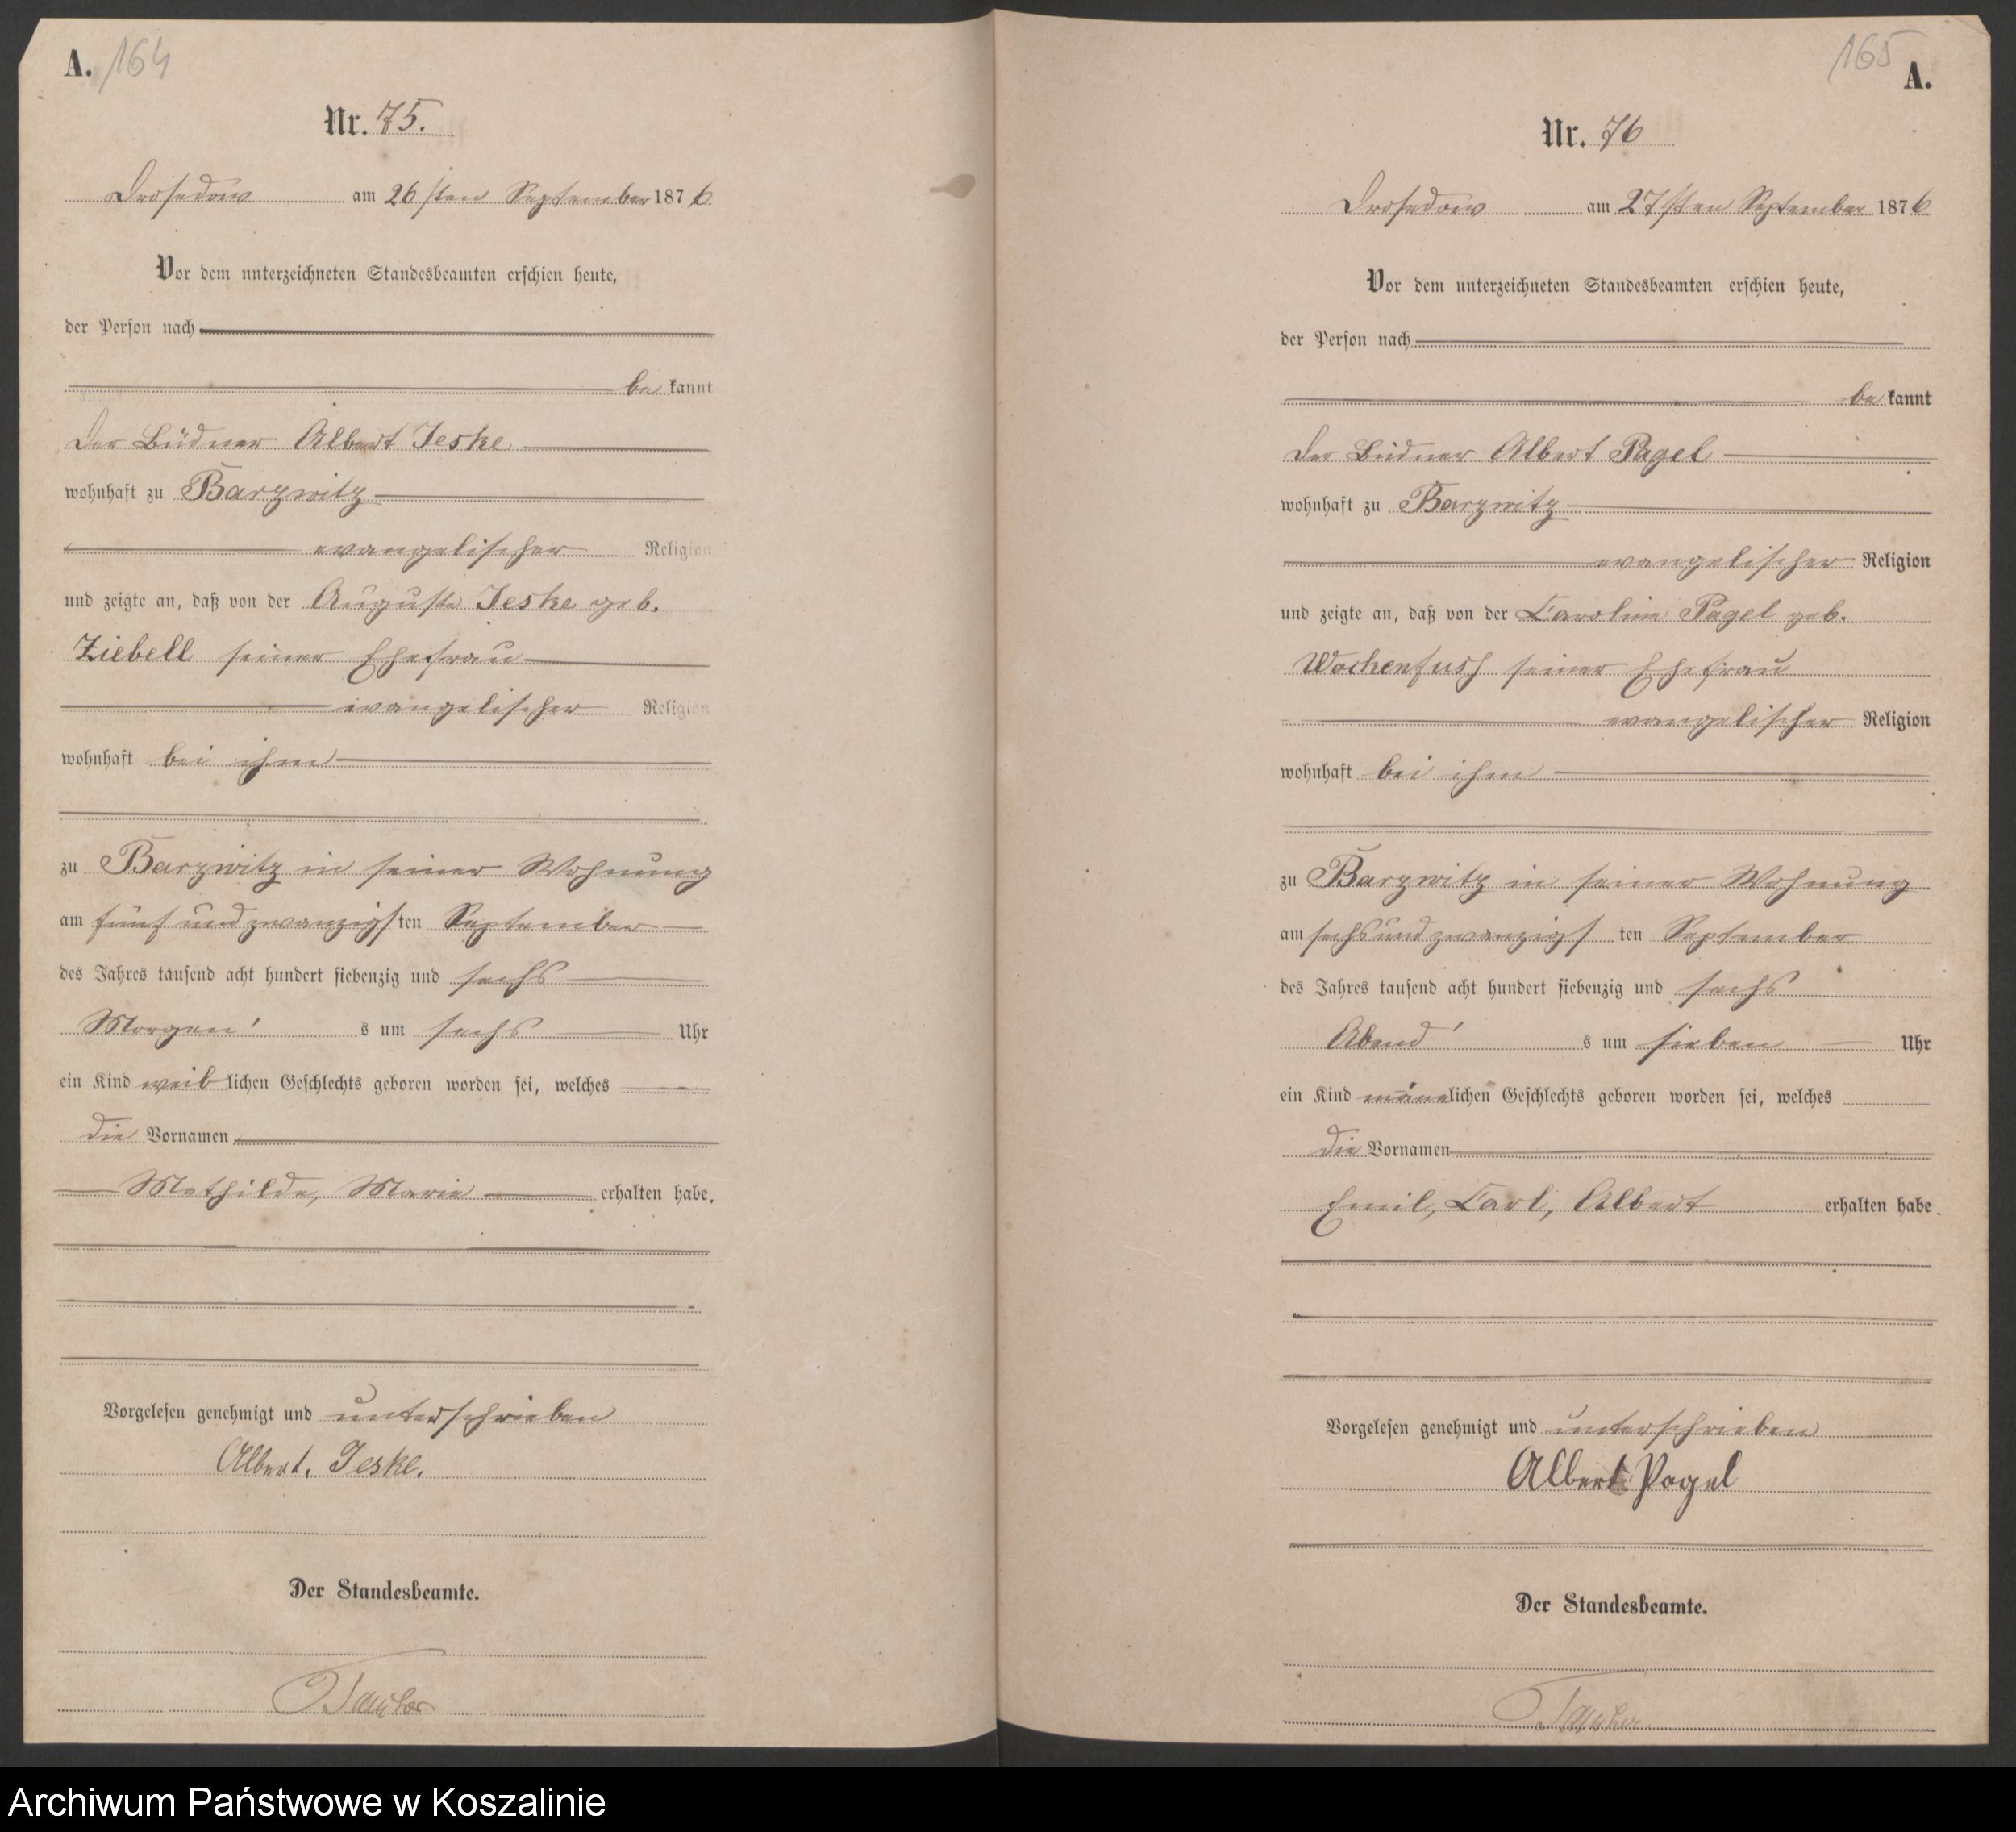 A. 164
Nr. 75.
Drosedow am 26sten September 1876
Vor dem unterzeichneten Standesbeamten erschien heute,
der Person nach
be kannt
Der Büdner Albert Jeske
wohnhaft zu Barzwitz
evangelischer Religion
und zeigte an, daß von der Auguste Jeske geb.
Ziebell seiner Ehefrau
evangelischer Religion
wohnhaft bei ihm
zu Barzwitz in seiner Wohnung
am fünf und zwanzigsten September
des Jahres tausend acht hundert siebenzig und sechs
Morgen' s um sechs Uhr
ein Kind weiblichen Geschlechts geboren worden sei, welches
die Vornamen
Mathilde, Marie erhalten habe.
Vorgelesen genehmigt und unterschrieben
Albert. Jeske.
Der Standesbeamte.
165 A.
Nr. 76
Drosedow am 27sten September 1876
Vor dem unterzeichneten Standesbeamten erschien heute,
der Person nach
be kannt
Der Büdner Albert Pagel
wohnhaft zu Barzwitz
evangelischer Religion
und zeigte an, daß von der Caroline Pagel geb.
Wockenfush seiner Ehefrau
evangelischer Religion
wohnhaft bei ihm
zu Barzwitz in seiner Wohnung
am sechsundzwanzigs ten September
des Jahres tausend acht hundert siebenzig und sechs
Abend' s um sieben Uhr
ein Kind männlichen Geschlechts geboren worden sei, welches
die Vornamen
Emil, Carl, Albert erhalten habe.
Vorgelesen genehmigt und unterschrieben
Albert Pagel
Der Standesbeamte.
Archiwum Państwowe w Koszalinie